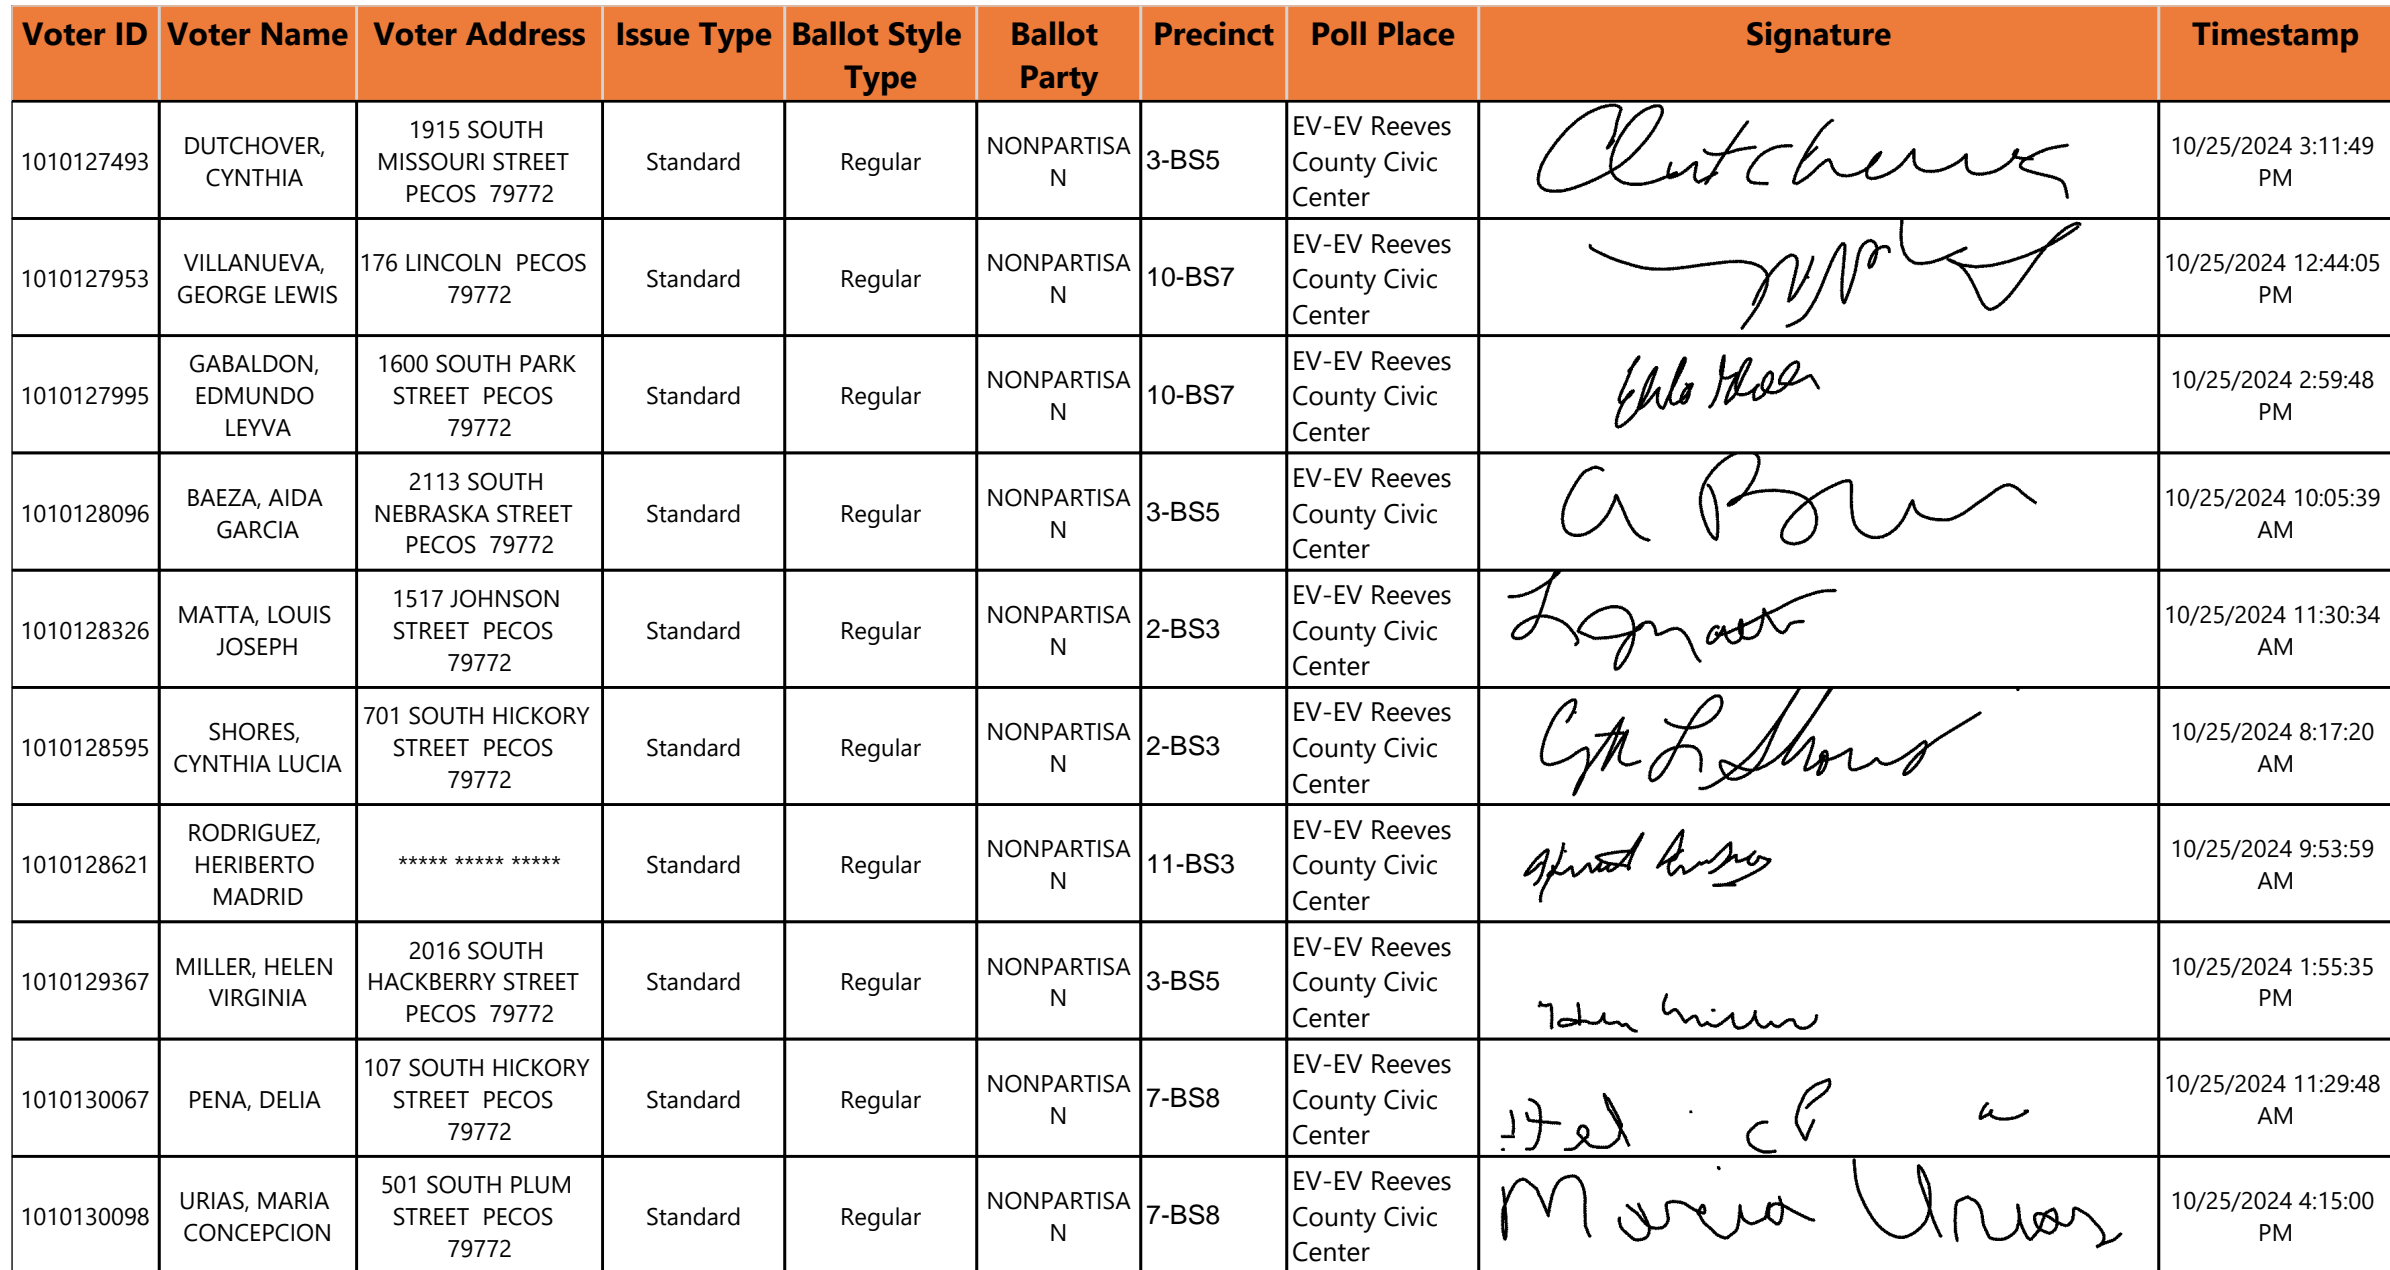 Voter ID Voter Name Voter Address Issue Type Ballot Style Type Ballot Party Precinct Poll Place Signature Timestamp
1010127493 DUTCHOVER, CYNTHIA 1915 SOUTH MISSOURI STREET PECOS 79772 Standard Regular NONPARTISAN 3-BS5 EV-EV Reeves County Civic Center 10/25/2024 3:11:49 PM
1010127953 VILLANUEVA, GEORGE LEWIS 176 LINCOLN PECOS 79772 Standard Regular NONPARTISAN 10-BS7 EV-EV Reeves County Civic Center 10/25/2024 12:44:05 PM
1010127995 GABALDON, EDMUNDO LEYVA 1600 SOUTH PARK STREET PECOS 79772 Standard Regular NONPARTISAN 10-BS7 EV-EV Reeves County Civic Center 10/25/2024 2:59:48 PM
1010128096 BAEZA, AIDA GARCIA 2113 SOUTH NEBRASKA STREET PECOS 79772 Standard Regular NONPARTISAN 3-BS5 EV-EV Reeves County Civic Center 10/25/2024 10:05:39 AM
1010128326 MATTA, LOUIS JOSEPH 1517 JOHNSON STREET PECOS 79772 Standard Regular NONPARTISAN 2-BS3 EV-EV Reeves County Civic Center 10/25/2024 11:30:34 AM
1010128595 SHORES, CYNTHIA LUCIA 701 SOUTH HICKORY STREET PECOS 79772 Standard Regular NONPARTISAN 2-BS3 EV-EV Reeves County Civic Center 10/25/2024 8:17:20 AM
1010128621 RODRIGUEZ, HERIBERTO MADRID ***** ***** ***** Standard Regular NONPARTISAN 11-BS3 EV-EV Reeves County Civic Center 10/25/2024 9:53:59 AM
1010129367 MILLER, HELEN VIRGINIA 2016 SOUTH HACKBERRY STREET PECOS 79772 Standard Regular NONPARTISAN 3-BS5 EV-EV Reeves County Civic Center Helen Miller 10/25/2024 1:55:35 PM
1010130067 PENA, DELIA 107 SOUTH HICKORY STREET PECOS 79772 Standard Regular NONPARTISAN 7-BS8 EV-EV Reeves County Civic Center 10/25/2024 11:29:48 AM
1010130098 URIAS, MARIA CONCEPCION 501 SOUTH PLUM STREET PECOS 79772 Standard Regular NONPARTISAN 7-BS8 EV-EV Reeves County Civic Center Maria Urias 10/25/2024 4:15:00 PM